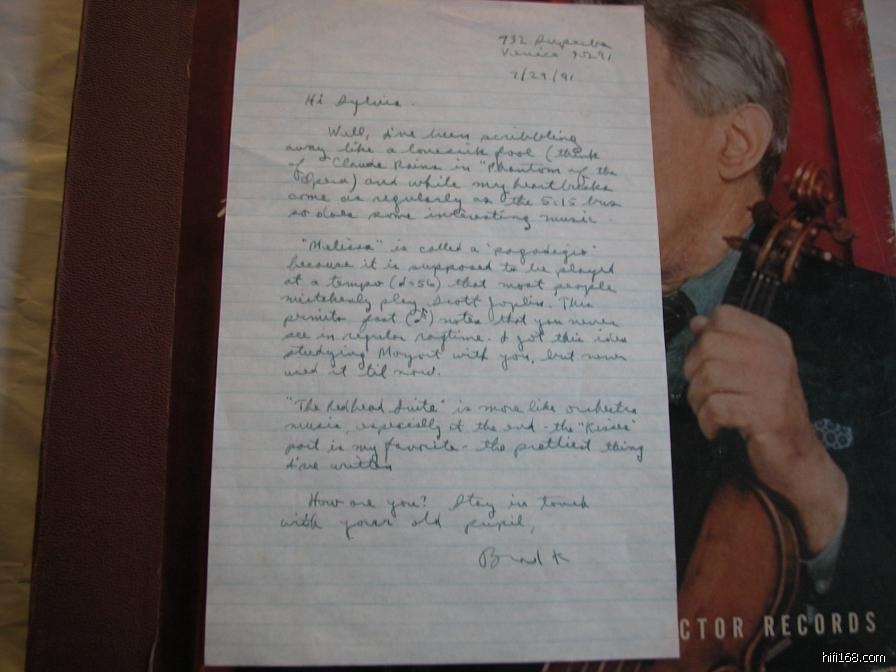 932 Superba
Venice 90291
7/29/91
Hi Sylvia.
Well, I've been scribbling
away like a lovesick fool (think
of Claude Rains in "Phantom of the
Opera) and while my heartbreaks
come as regularly as the 5:15 bus
so does some interesting music.
"Melissa" is called a "ragadagio"
because it is supposed to be played
at a tempo (♩=56) that most people
mistakenly play Scott Joplin. This
permits fast notes that you never
see in regular ragtime. I got this idea
studying Mozart with you, but never
used it 'til now.
"The Redhead Suite" is more like orchestra
music, especially at the end - the "Kisses"
part is my favorite - the prettiest thing
I've written
How are you? Stay in touch
with your old pupil,
Brad K
CTOR RECORDS
hifi168.com